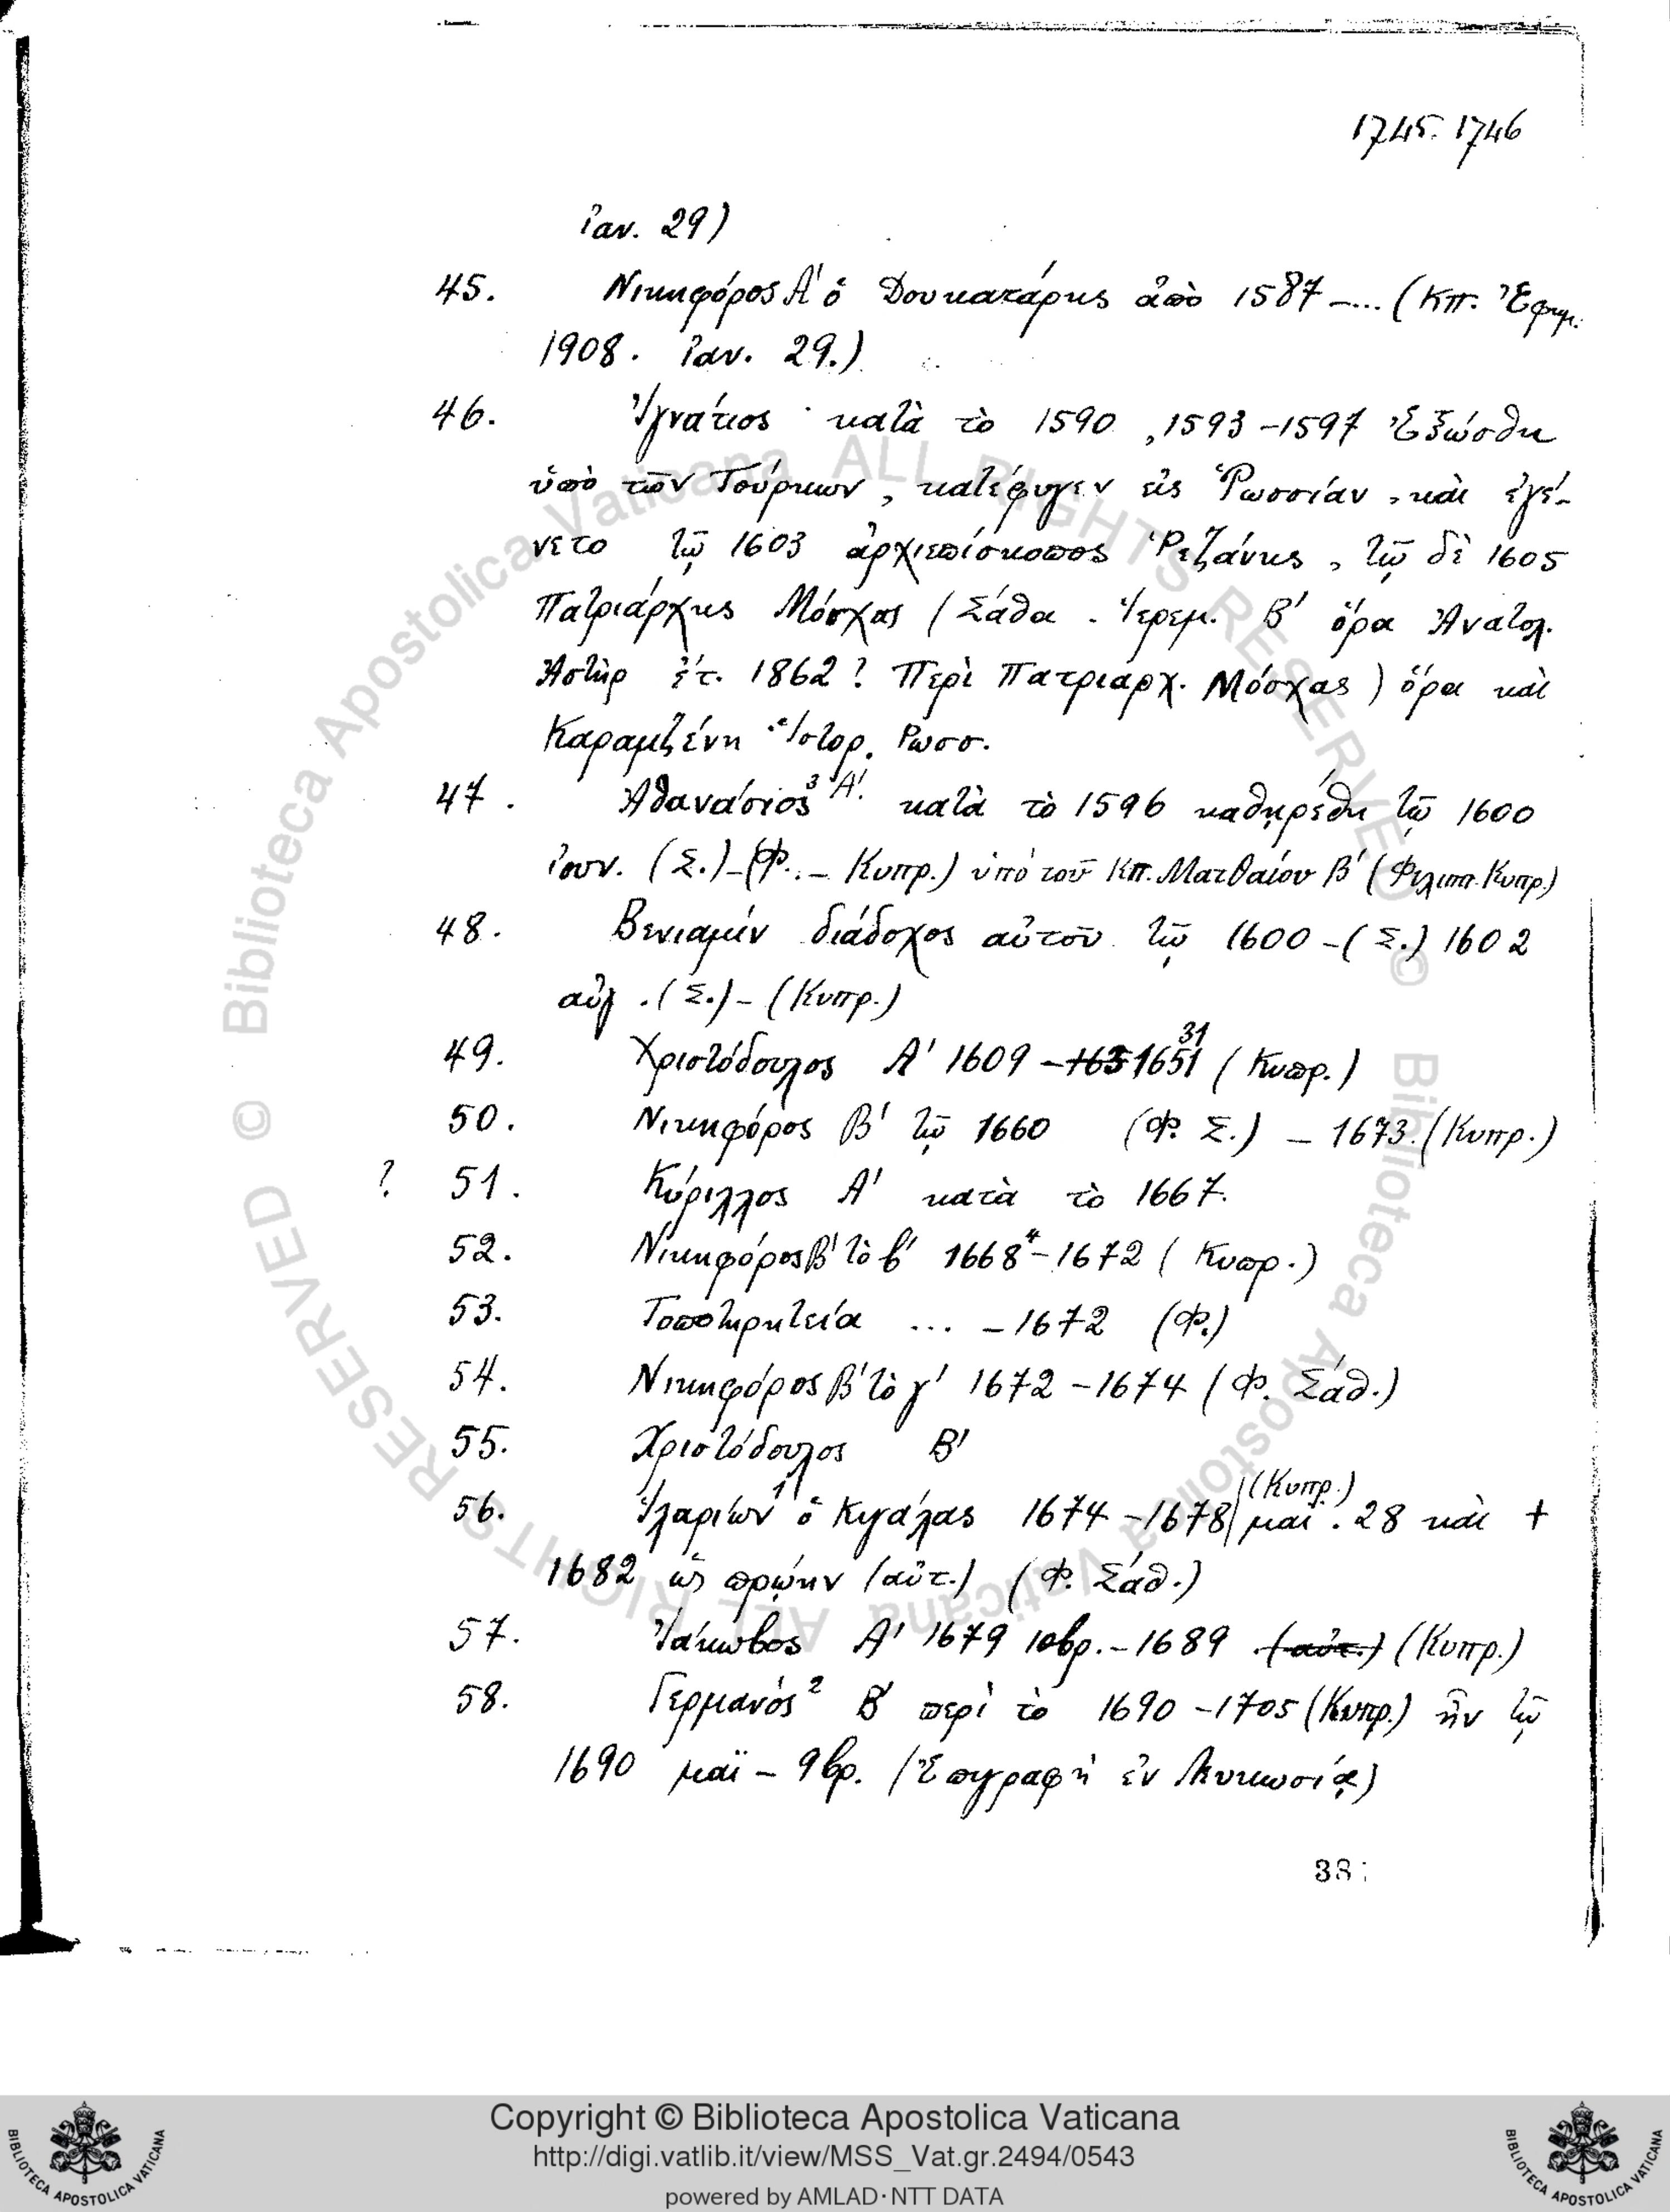 1745. 1746
ἰαν. 29)
45. Νικηφόρος Α' ὁ Δουκατάρης ἀπὸ 1587 –... (Κπ. Ἐφημ.
1908. ἰαν. 29.)
46. Ἰγνάτιος κατὰ τὸ 1590, 1593–1597 Ἐξώσθη
ὑπὸ τῶν Τούρκων, κατέφυγεν εἰς Ῥωσσίαν, καὶ ἐγέ-
νετο τῷ 1603 ἀρχιεπίσκοπος Ῥεζάνης, τῷ δὲ 1605
Πατριάρχης Μόσχας (Σάθα. Ἱερεμ. Β' ὅρα Ἀνατολ.
Ἀστὴρ ἔτ. 1862? Περὶ Πατριαρχ. Μόσχας) ὅρα καὶ
Καραμζένη Ἱστορ. Ρωσσ.
47. Ἀθανάσιος³ Α'. κατὰ τὸ 1596 καθῃρέθη τῷ 1600
ἰουν. (Σ.)–(Φ. – Κυπρ.) ὑπὸ τοῦ Κπ. Ματθαίου Β' (Φιλιππ. Κυπρ.)
48. Βενιαμὶν διάδοχος αὐτοῦ τῷ 1600 –(Σ.) 1602
αὐγ. (Σ.) – (Κυπρ.)
49. Χριστόδουλος Α' 1609 – 163 1651 31 (Κυπρ.)
50. Νικηφόρος Β' τῷ 1660 (Φ. Σ.) – 1673. (Κυπρ.)
? 51. Κύριλλος Α' κατὰ τὸ 1667.
52. Νικηφόρος Β' τὸ β' 1668⁴–1672 (Κυπρ.)
53. Τοποτηρητεία ... – 1672 (Φ.)
54. Νικηφόρος Β' τὸ γ' 1672 – 1674 (Φ. Σάθ.)
55. Χριστόδουλος Β'
56. Ἱλαρίων¹ ὁ Κιγάλας 1674 – 1678 (Κυπρ.) μαΐ. 28 καὶ +
1682 ὡς πρώην (αὐτ.) (Φ. Σάθ.)
57. Ἰάκωβος Α' 1679 10βρ. – 1689 (αὐτ.) (Κυπρ.)
58. Γερμανός² Β' περὶ τὸ 1690 – 1705 (Κυπρ.) ἦν τῷ
1690 μαϊ – 9βρ. (Ἐπιγραφὴ ἐν Λευκωσίᾳ)
38
© Biblioteca Apostolica Vaticana ALL RIGHTS RESERVED
© Biblioteca Apostolica Vaticana ALL RIGHTS RESERVED
Copyright © Biblioteca Apostolica Vaticana
http://digi.vatlib.it/view/MSS_Vat.gr.2494/0543
powered by AMLAD·NTT DATA
BIBLIOTECA APOSTOLICA VATICANA
BIBLIOTECA APOSTOLICA VATICANA